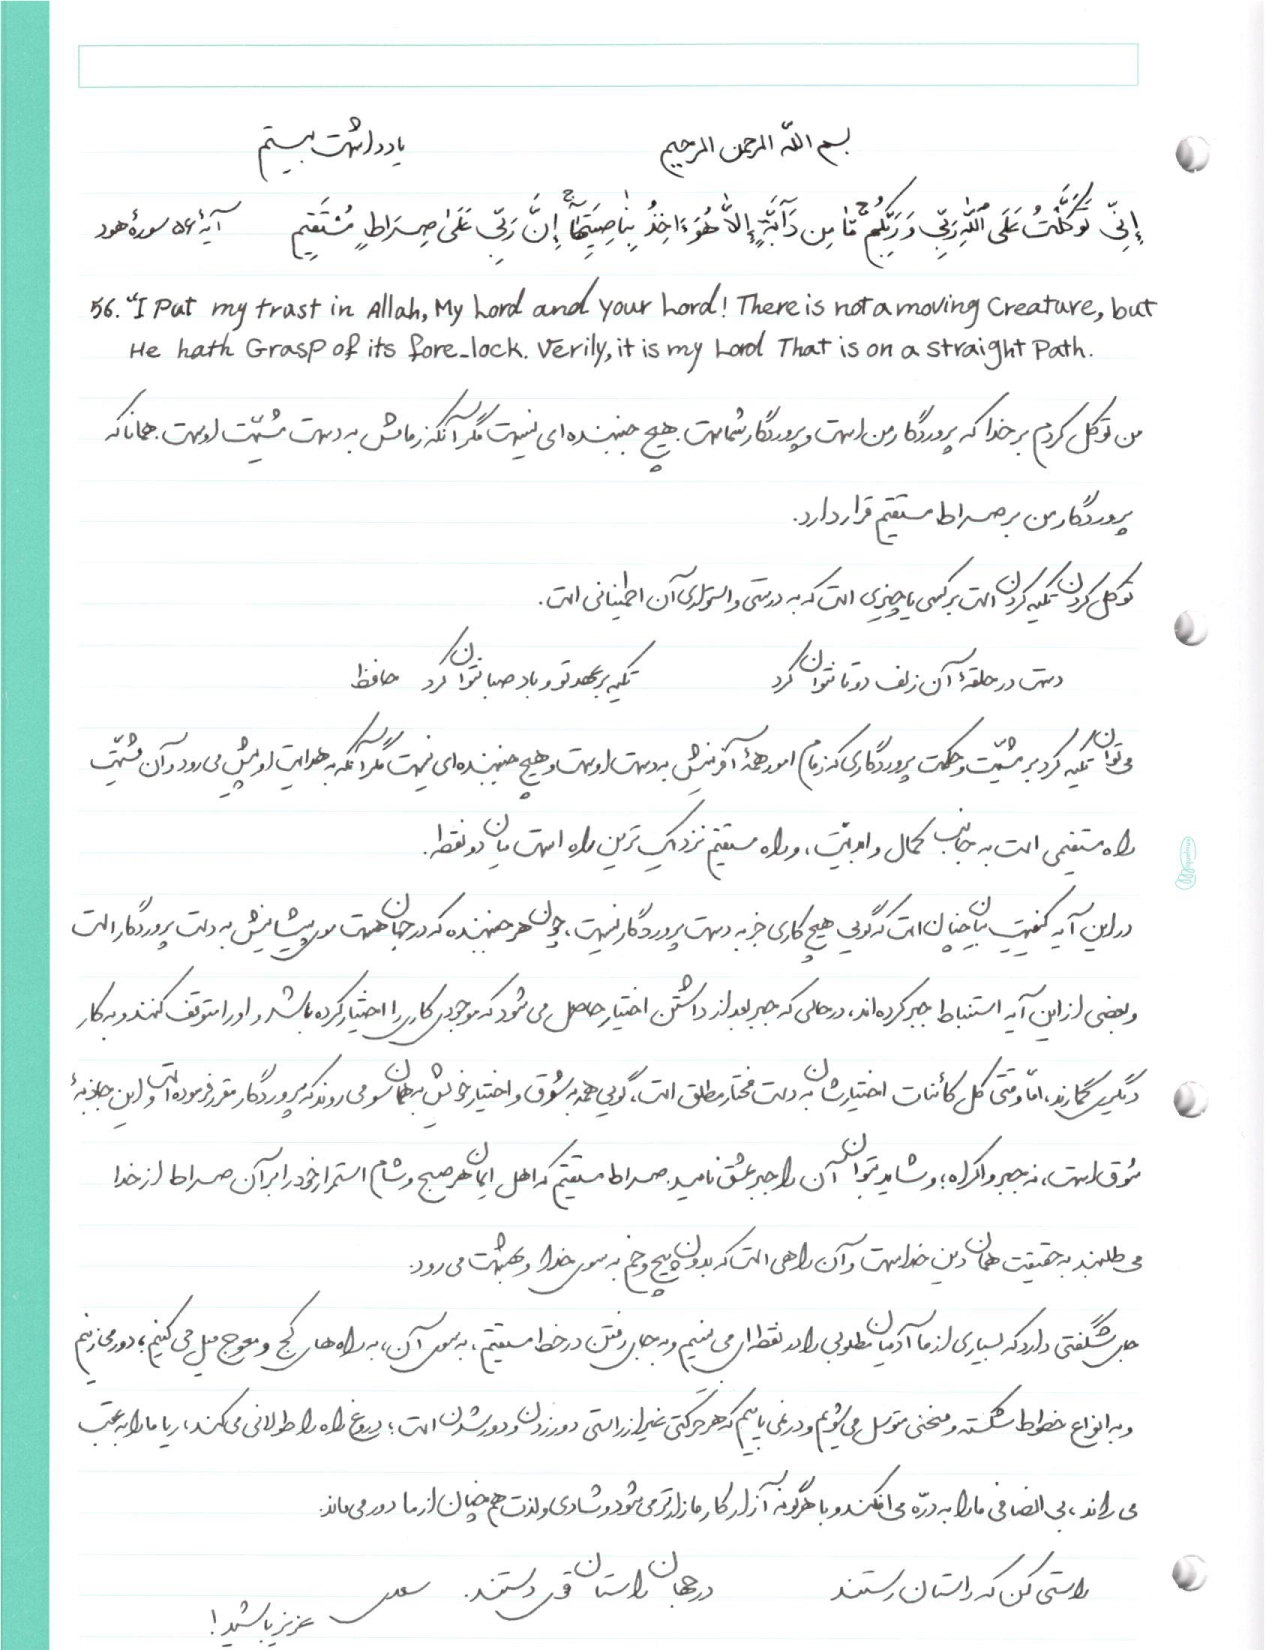 بسم اللّه الرحمن الرحیم یادداشت بیستم
إِنِّی تَوَكَّلْتُ عَلَى ٱللَّهِ رَبِّی وَ رَبِّكُم مَّا مِن دَآبَّةٍ إِلَّا هُوَ ءَاخِذٌ بِنَاصِیَتِهَآ إِنَّ رَبِّی عَلَىٰ صِرَاطٍ مُّسْتَقِیمٍ آیهٔ ۵۶ سورهٔ هود
56. "I Put my trust in Allah, My Lord and your Lord! There is not a moving Creature, but
He hath Grasp of its fore-lock. Verily, it is my Lord That is on a straight Path.
من توکل کردم بر خدا که پروردگار من است و پروردگار شماست. هیچ جنبنده ای نیست مگر آنکه زمامش به دست مشیّت اوست. همانا که
پروردگار من بر صراط مستقیم قرار دارد.
توکل کردن تکیه کردن است بر کسی یا چیزی است که به درستی و استواری آن اطمینانی است.
دست در حلقهٔ آن زلف دوتا نتوان کرد تکیه بر عهد تو و باد صبا نتوان کرد حافظ
می توان تکیه کرد بر مشیّت و حکمت پروردگاری که زمام امور همهٔ آفرینش به دست اوست و هیچ جنبنده ای نیست مگر آنکه به هدایت او پیش می رود و آن مشیّت
راه مستقیمی است به جانب کمال و ابدیّت، و راه مستقیم نزدیک ترین راه است میان دو نقطه.
در این آیه کیفیت بیان چنان است که گویی هیچ کاری جز به دست پروردگار نیست، چون هر جنبنده که در جهان هست موی پیشانیش به دست پروردگار است
و بعضی از این آیه استنباط جبر کرده اند، در حالی که جبر بعد از داشتن اختیار حاصل می شود که موجودی کاری را اختیار کرده باشد و او را متوقف کنند و به کار
دیگری گمارند، امّا وقتی کل کائنات اختیارشان به دست مختار مطلق است، گویی همه به شوق و اختیار خویش به همان سو می روند که پروردگار مقرر فرموده است و این جاذبهٔ
شوق است، نه جبر و اکراه؛ و شاید بتوان آن را جبر عشق نامید. صراط مستقیم که اهل ایمان هر صبح و شام استمرار خود را بر آن صراط از خدا
می طلبند به حقیقت همان دین خداست و آن راهی است که بدون پیچ و خم به سوی خدا و بهشت می رود.
جای شگفتی دارد که بسیاری از ما آدمیان مطلوبی را در نقطه ای می بینیم و به جای رفتن در خط مستقیم، به سوی آن، به راه های کج و معوج میل می کنیم؛ دور می زنیم
و به انواع خطوط شکسته و منحنی متوسل می شویم و در نمی یابیم که هر حرکتی غیر از راستی دور زدن و دور شدن است؛ دروغ راه را طولانی می کند، ریا ما را به عقب
می راند، بی انصافی ما را به درّه می افکند و با هرگونه آزار کار ما زارتر می شود و شادی و لذت هم چنان از ما دور می ماند.
راستی کن که راستان رستند در جهان راستان قوی دستند. سعدی
عزیز باشید!